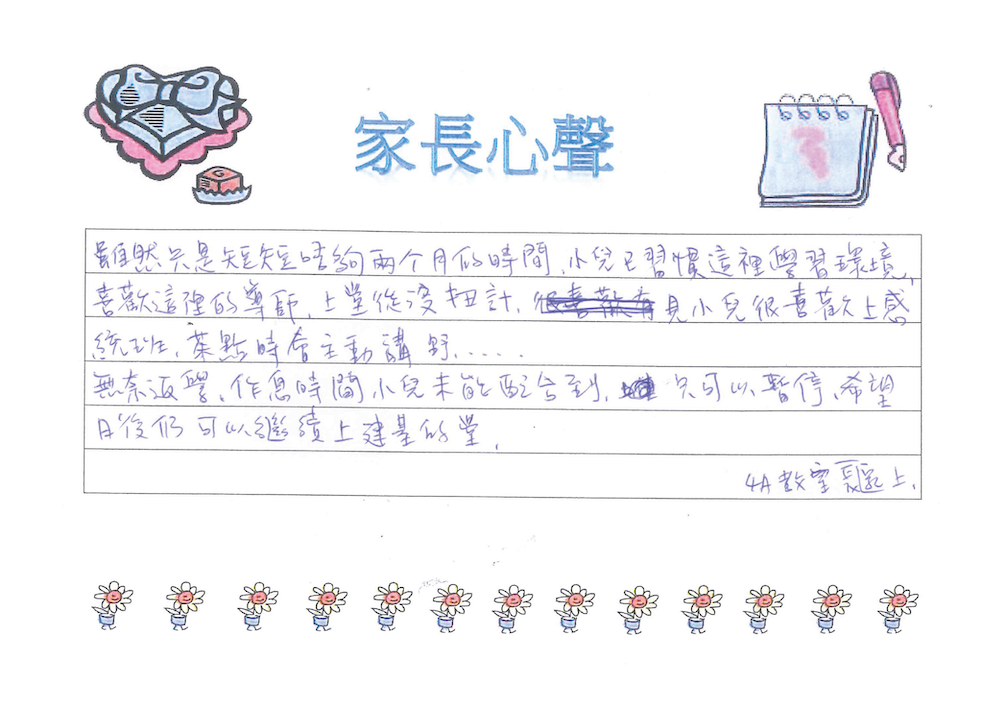 家長心聲
雖然只是短短唔夠兩个月的時間,小兒已習慣這裡學習環境,
喜歡這裡的導師,上堂從沒扭計,見小兒很喜歡上感
統班,茶點時會主動講野.....
無奈返學,作息時間小兒未能配合到,只可以暫停,希望
日後仍可以繼續上建基的堂.
4A教室 上.